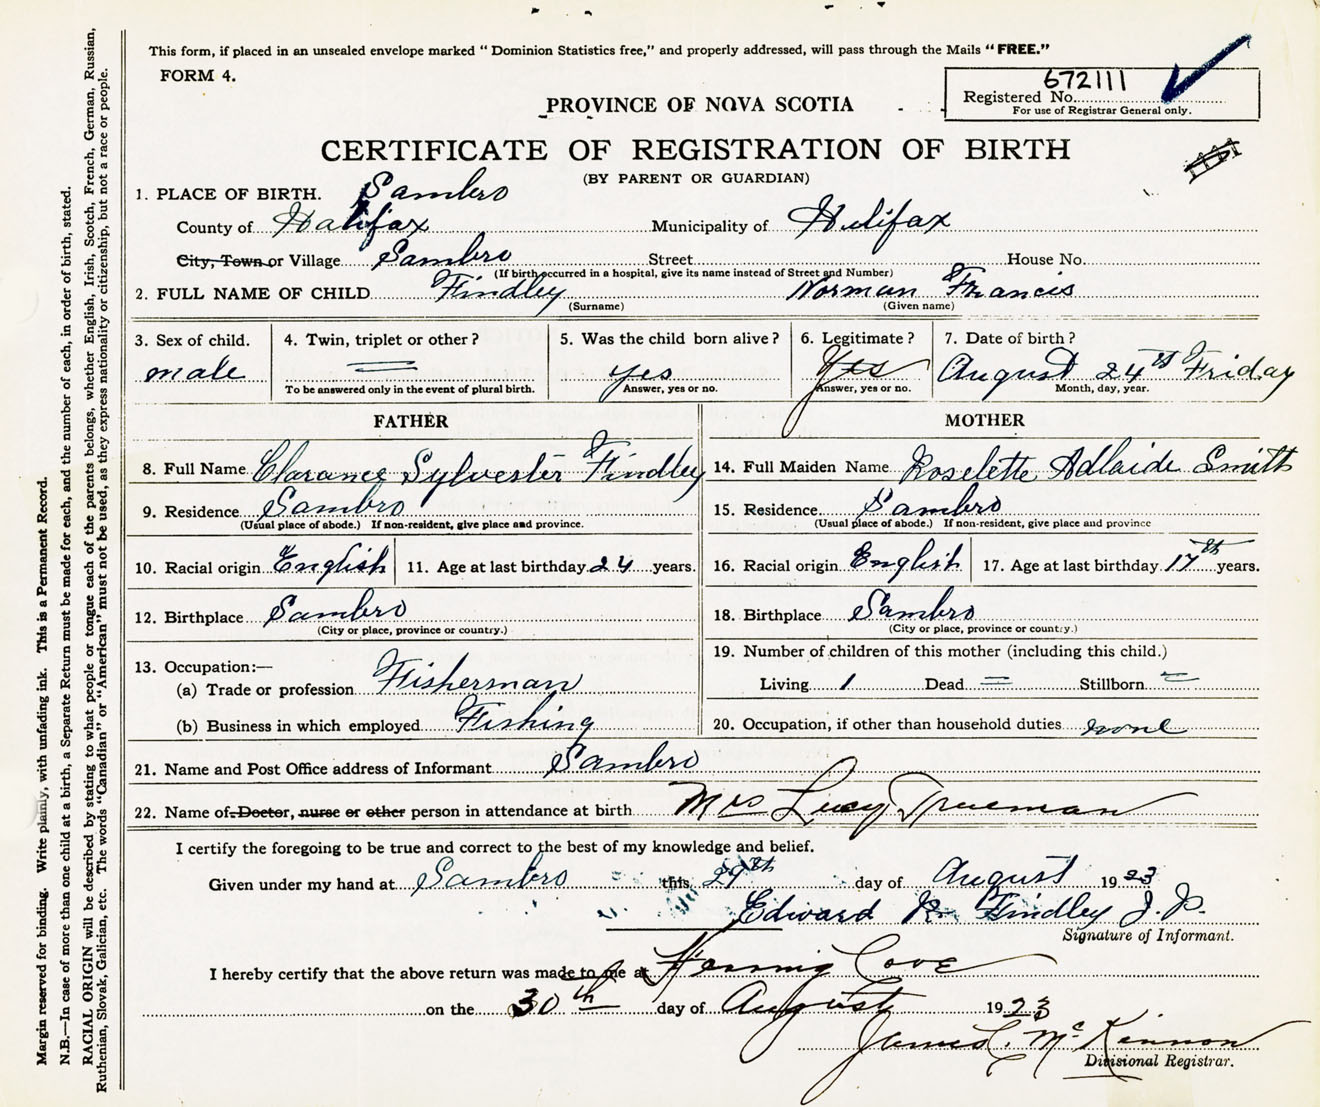 This form, if placed in an unsealed envelope marked "Dominion Statistics free," and properly addressed, will pass through the Mails "FREE."
FORM 4.
672111
Registered No.
For use of Registrar General only.
PROVINCE OF NOVA SCOTIA
CERTIFICATE OF REGISTRATION OF BIRTH
(BY PARENT OR GUARDIAN)
1. PLACE OF BIRTH. Sambro
County of Halifax Municipality of Halifax
City, Town or Village Sambro Street House No.
(If birth occurred in a hospital, give its name instead of Street and Number)
2. FULL NAME OF CHILD Findley Norman Francis
(Surname) (Given name)
3. Sex of child. 4. Twin, triplet or other? 5. Was the child born alive? 6. Legitimate? 7. Date of birth?
male = yes Yes August 24th Friday
To be answered only in the event of plural birth. Answer, yes or no. Answer, yes or no. Month, day, year.
FATHER MOTHER
8. Full Name Clarance Sylvester Findley 14. Full Maiden Name Roselette Adlaide Smith
9. Residence Sambro 15. Residence Sambro
(Usual place of abode.) If non-resident, give place and province. (Usual place of abode.) If non-resident, give place and province
10. Racial origin English 11. Age at last birthday 24 years. 16. Racial origin English 17. Age at last birthday 17th years.
12. Birthplace Sambro 18. Birthplace Sambro
(City or place, province or country.) (City or place, province or country.)
13. Occupation:— 19. Number of children of this mother (including this child.)
(a) Trade or profession Fisherman Living 1 Dead = Stillborn =
(b) Business in which employed Fishing 20. Occupation, if other than household duties none
21. Name and Post Office address of Informant Sambro
22. Name of Doctor, nurse or other person in attendance at birth Mrs Lucy Trueman
I certify the foregoing to be true and correct to the best of my knowledge and belief.
Given under my hand at Sambro this 29th day of August 1923
Edward R. Findley J. P.
Signature of Informant.
I hereby certify that the above return was made to me at Herring Cove
on the 30th day of August 1923
James C. McKinnon
Divisional Registrar.
Margin reserved for binding. Write plainly, with unfading ink. This is a Permanent Record.
N.B.—In case of more than one child at a birth, a Separate Return must be made for each, and the number of each, in order of birth, stated.
RACIAL ORIGIN will be described by stating to what people or tongue each of the parents belongs, whether English, Irish, Scotch, French, German, Russian,
Ruthenian, Slovak, Galician, etc. The words "Canadian" or "American" must not be used, as they express nationality or citizenship, but not a race or people.